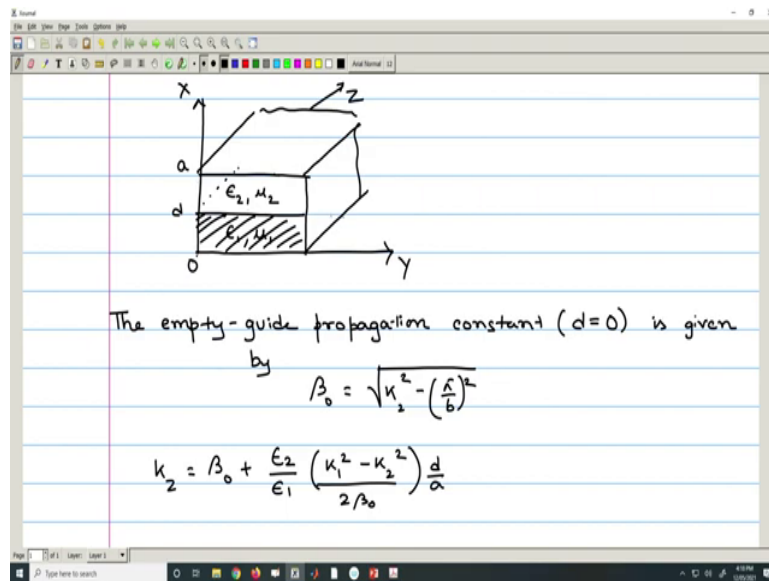 Journal
File Edit View Page Tools Options Help
T A Arial Normal 12
X
Z
a
ϵ₂, μ₂
d
ϵ₁, μ₁
0
Y
The empty-guide propagation constant (d=0) is given
by
β₀ = √(K₂² - (π/b)²)
k_z = β₀ + ϵ₂/ϵ₁ ((K₁² - K₂²)/2β₀) d/a
Page 1 of 1 Layer: Layer 1
Type here to search
4:10 PM
12/05/2021